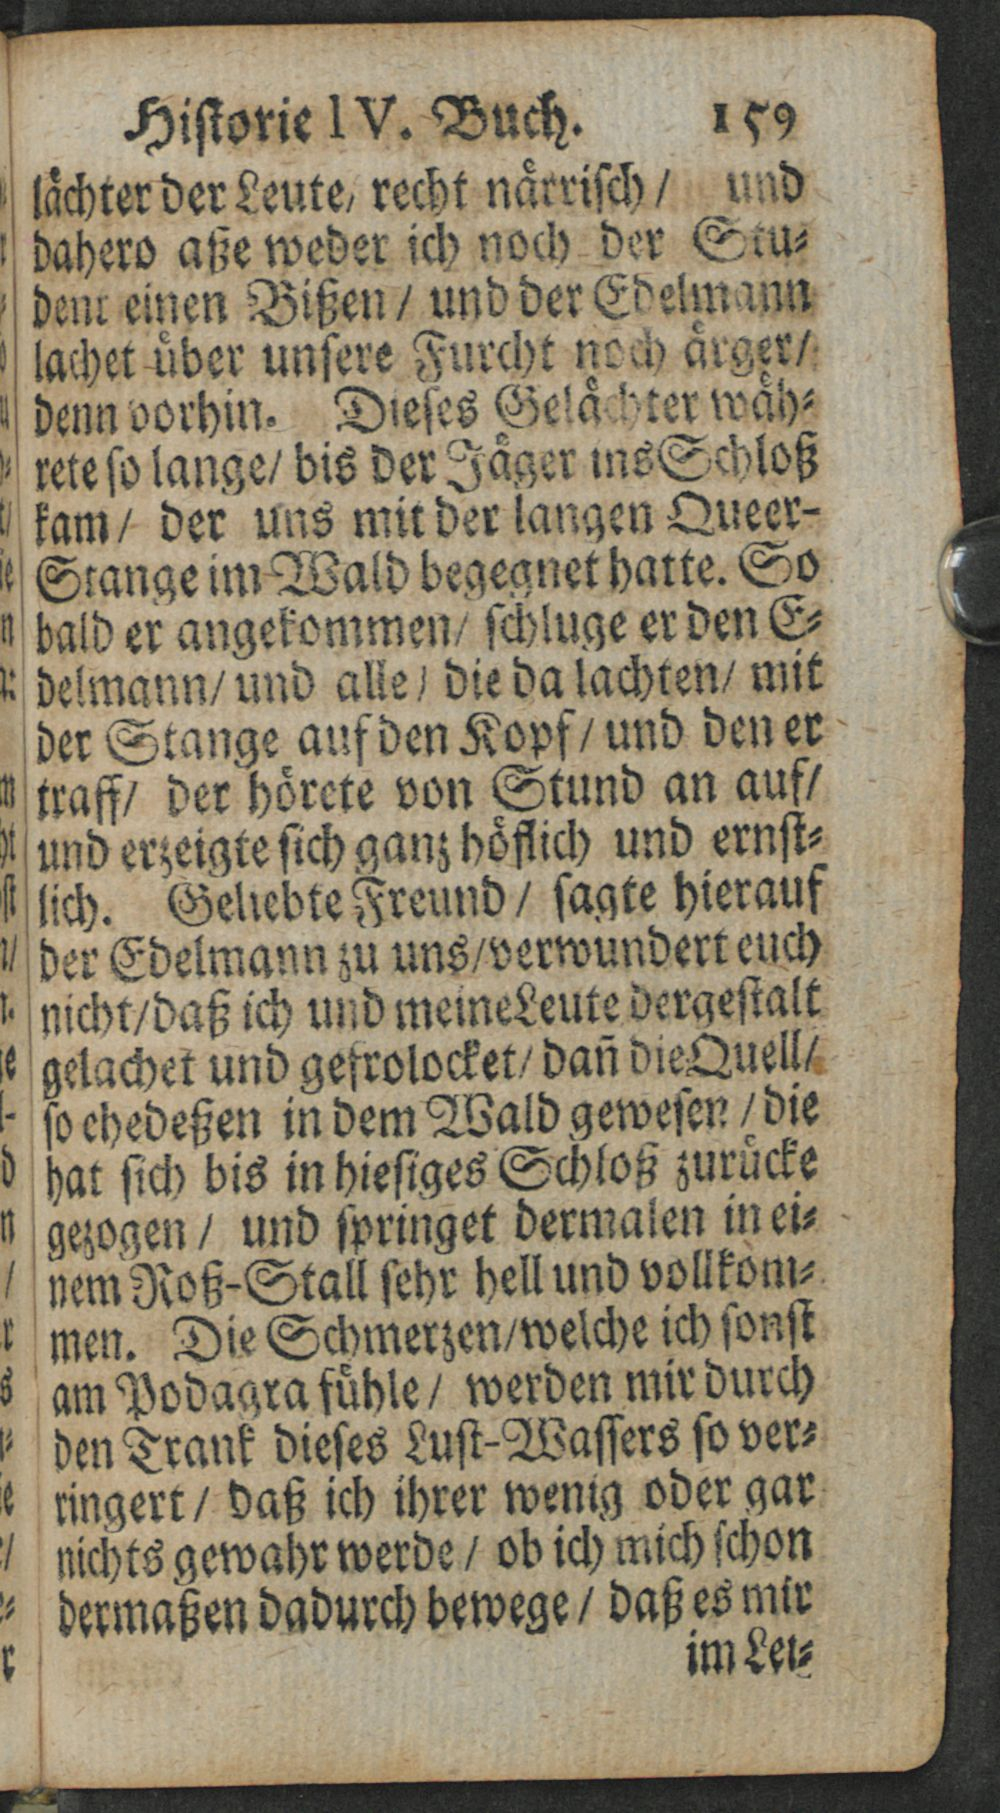 Historie IV. Buch. 159
lächter der Leute, recht närrisch / und
dahero aße weder ich noch der Stu⸗
dent einen Bißen / und der Edelmann
lachet über unsere Furcht noch ärger /
denn vorhin. Dieses Gelächter wäh⸗
rete so lange / bis der Jäger ins Schloß
kam / der uns mit der langen Queer-
Stange im Wald begegnet hatte. So
bald er angekommen / schluge er den E⸗
delmann / und alle / die da lachten / mit
der Stange auf den Kopf / und den er
traff / der hörete von Stund an auf /
und erzeigte sich ganz höflich und ernst⸗
lich. Geliebte Freund / sagte hierauf
der Edelmann zu uns / verwundert euch
nicht / daß ich und meine Leute dergestalt
gelachet und gefrolocket / dañ die Quell /
so ehedeßen in dem Wald gewesen / die
hat sich bis in hiesiges Schloß zurücke
gezogen / und springet dermalen in ei⸗
nem Roß-Stall sehr hell und vollkom⸗
men. Die Schmerzen / welche ich sonst
am Podagra fühle / werden mir durch
den Trank dieses Lust-Wassers so ver⸗
ringert / daß ich ihrer wenig oder gar
nichts gewahr werde / ob ich mich schon
dermaßen dadurch bewege / daß es mir
im Lei⸗